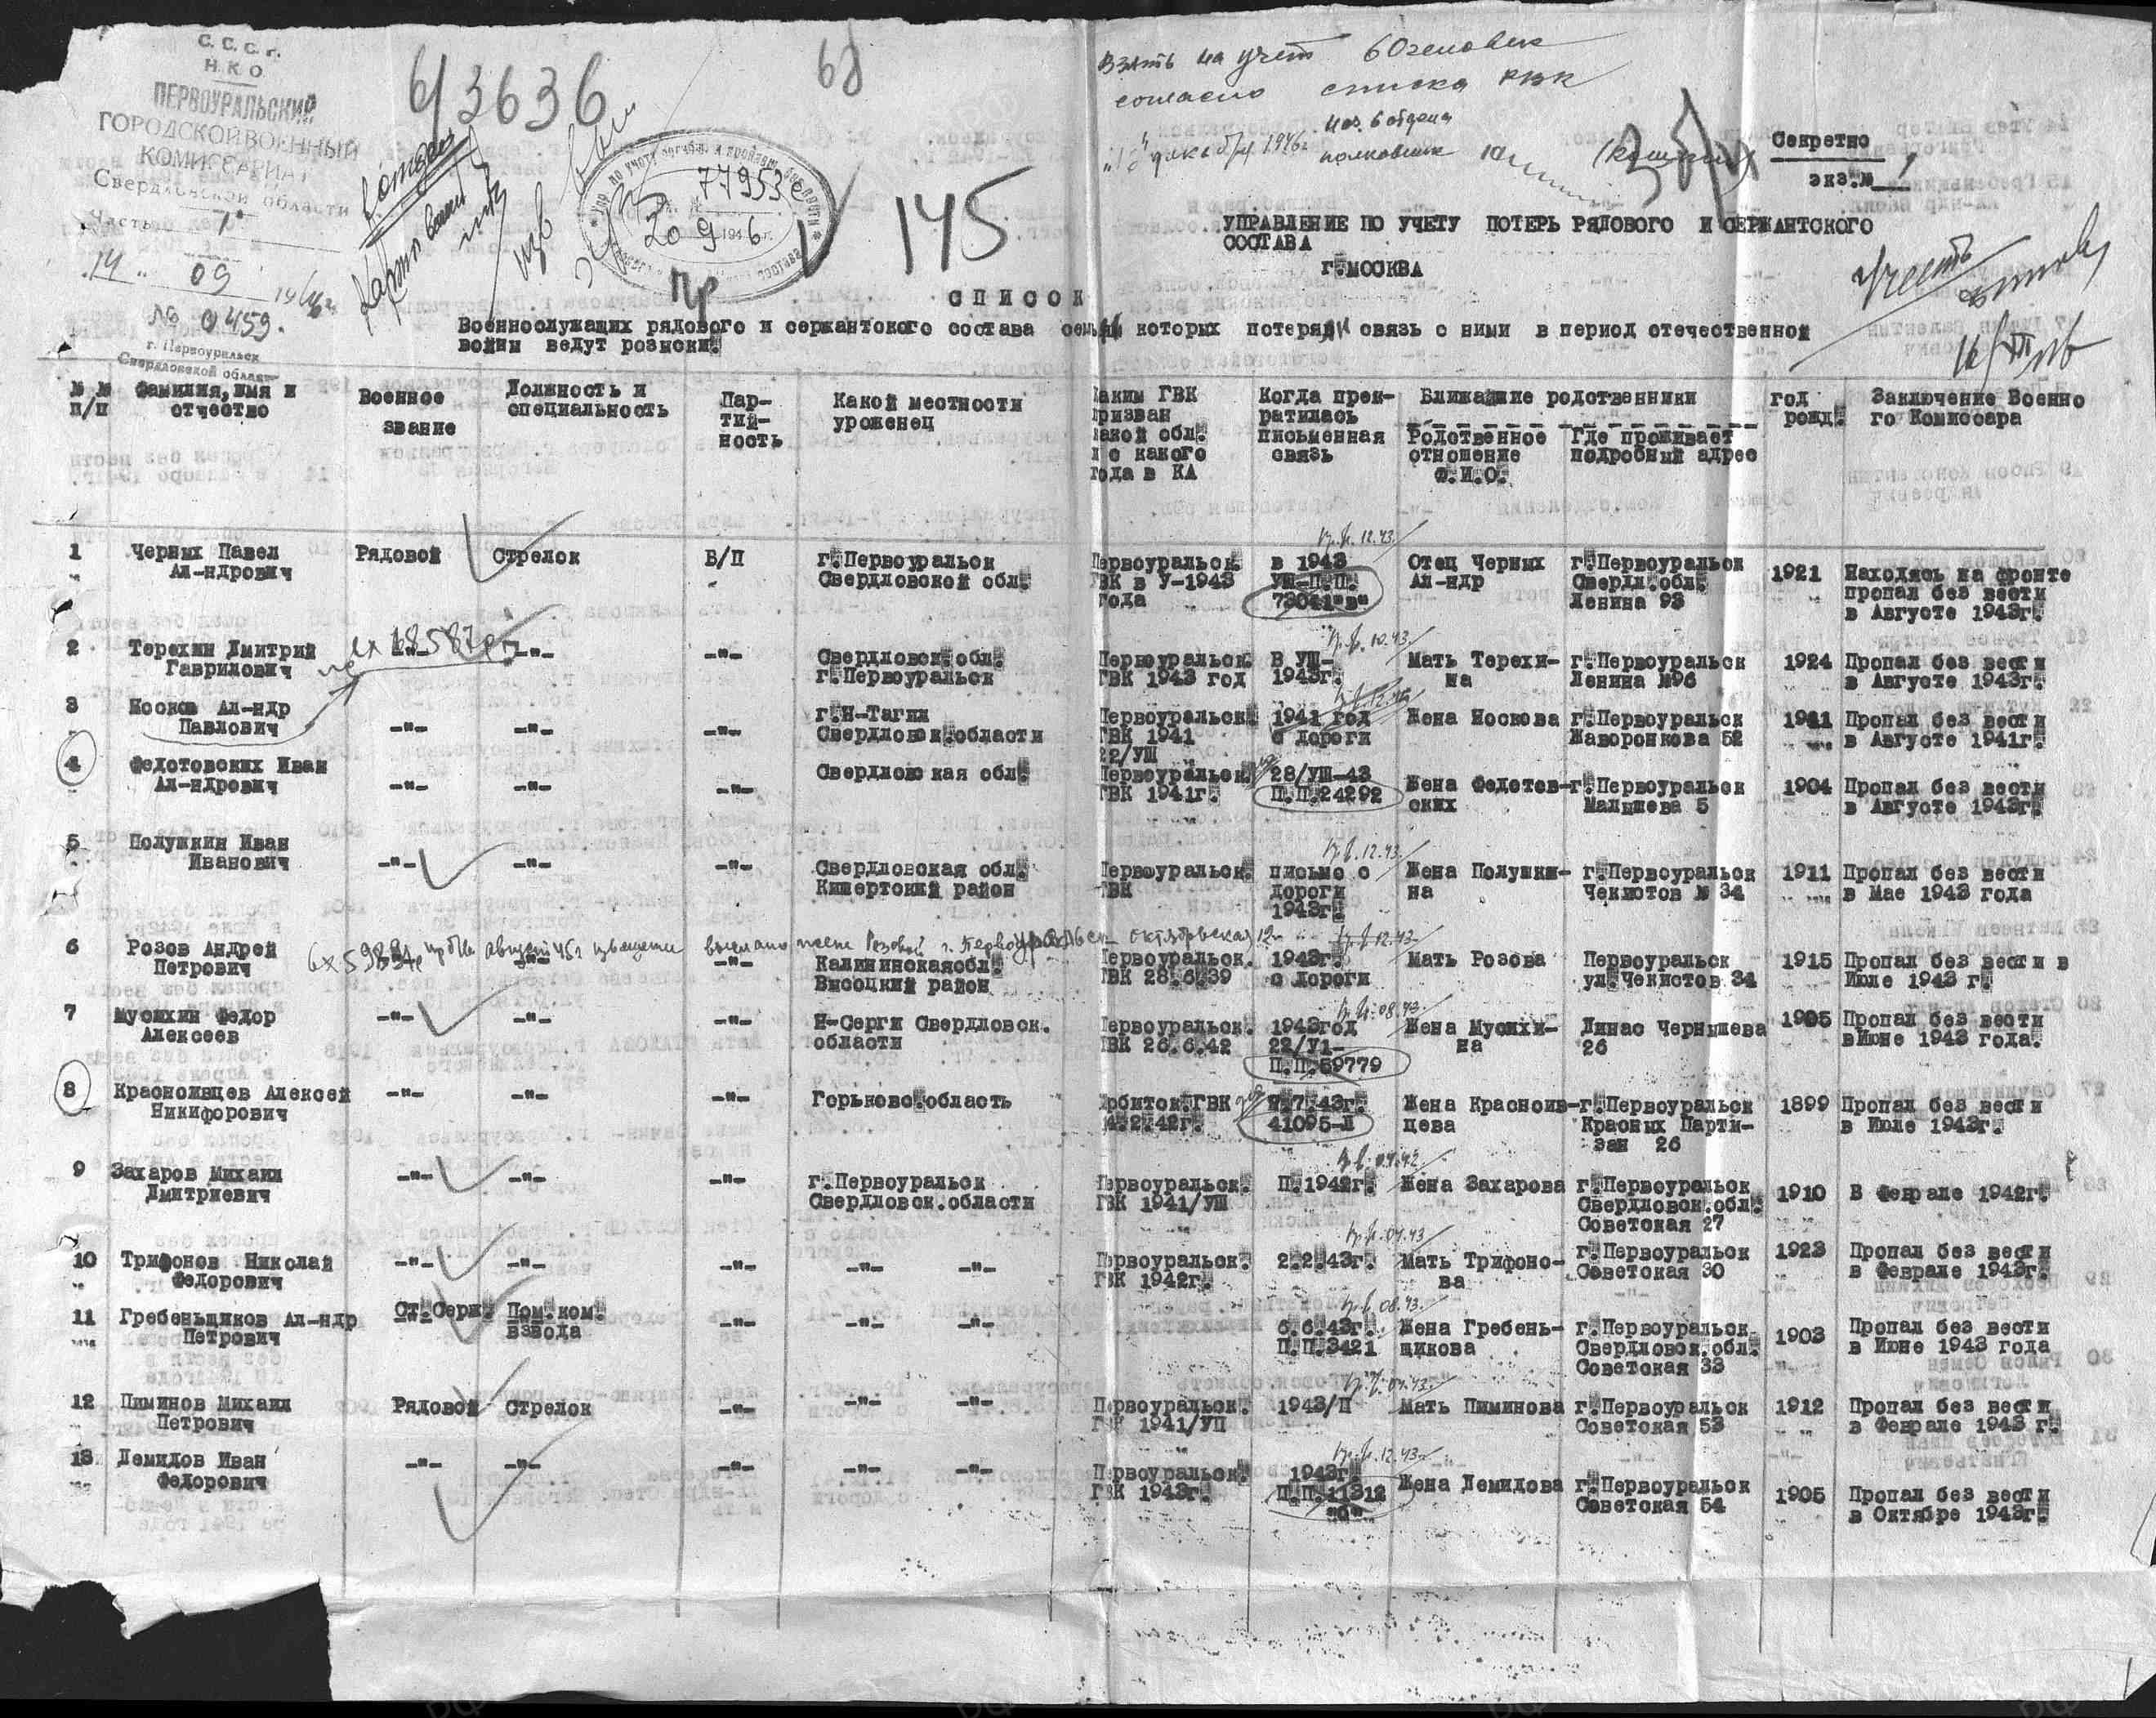 С.С.С.Р.
Н.К.О.
ПЕРВОУРАЛЬСКИЙ
ГОРОДСКОЙ ВОЕННЫЙ
КОМИССАРИАТ
Свердловской области
Часть 1
14 " 09 1946г
№ 0459.
г. Первоуральск
Свердловской области
6/3636
68
77953с
20 9 1946г.
145
пр
Взять на учет 60 человек
согласно списка РВК
нач. 6 отдела
декабря 1946г. полковник
Секретно
экз.№ 1
УПРАВЛЕНИЕ ПО УЧЕТУ ПОТЕРЬ РЯДОВОГО И СЕРЖАНТСКОГО
СОСТАВА
г.МОСКВА
Учесть
16/XII 46
СПИСОК
Военнослужащих рядового и сержантского состава семьи которых потеряли связь с ними в период отечественной
войны ведут розыски.
№ № п/п | Фамилия, имя и отчество | Военное звание | Должность и специальность | Пар-тий-ность | Какой местности уроженец | Каким ГВК призван какой обл. и с какого года в КА | Когда прек-ратилась письменная связь | Ближайшие родственники | Родственное отношение Ф.И.О. | Где проживает подробный адрес | год рожд. | Заключение Военно го Комиссара
1 Черных Павел Ал-ндрович | Рядовой | Стрелок | Б/П | г.Первоуральск Свердловской обл. | Первоуральск. ГВК в У-1943 года | в 1943 УШ-П.П. 73041"в" | Отец Черных Ал-ндр | г.Первоуральск Свердл.обл. Ленина 93 | 1921 | Находясь на фронте пропал без вести в Августе 1943г.
пр.б. 12.43.
2 Терехин Дмитрий Гаврилович | -"- | -"- | -"- | Свердловск.обл. г.Первоуральск | Первоуральск. ГВК 1943 год | В УШ- 1943г. | Мать Терехи-на | г.Первоуральск Ленина №96 | 1924 | Пропал без вести в Августе 1943г.
пр.б. 10.43.
3 Носков Ал-ндр Павлович | -"- | -"- | -"- | г.Н-Тагил Свердловск.области | Первоуральск. ГВК 1941 22/УШ | 1941 год с дороги | Жена Носкова | г.Первоуральск Жаворонкова 52 | 1911 | Пропал без вести в Августе 1941г.
4 Федотовских Иван Ал-ндрович | -"- | -"- | -"- | Свердловская обл. | Первоуральск. ГВК 1941г. | 28/УШ-43 П.П.24292 | Жена Федотов-ских | г.Первоуральск Малышева 5 | 1904 | Пропал без вести в Августе 1943г.
5 Полушкин Иван Иванович | -"- | -"- | -"- | Свердловская обл. Кишертский район | Первоуральск. ГВК | письмо с дороги 1943г. | Жена Полушки-на | г.Первоуральск Чекистов № 34 | 1911 | Пропал без вести в Мае 1943 года
пр.б. 12.43.
6 Розов Андрей Петрович | -"- | -"- | Калининская обл. Высоцкий район | Первоуральск. ГВК 28.6.39 | 1943г. с дороги | Мать Розова | Первоуральск ул.Чекистов 34 | 1915 | Пропал без вести в Июле 1943 г.
август 45г извещение выслано жене Розовой г. Первоуральск Октябрьская 12
пр.б. 12.43.
7 Мусихин Федор Алексеев | -"- | -"- | -"- | Н-Серги Свердловск. области | Первоуральск. ГВК 26.6.42 | 1943год 22/У1- П.П.59779 | Жена Мусихи-на | Динас Чернышева 26 | 1905 | Пропал без вести вИюне 1943 года.
пр.б. 08.43.
8 Красноивцев Алексей Никифорович | -"- | -"- | -"- | Горьковс.область | Ирбитск.ГВК 4.2.42г. | 7.7.43г. 41095-Л | Жена Красноив-цева | г.Первоуральск Красных Парти-зан 26 | 1899 | Пропал без вести в Июле 1943г.
9 Захаров Михаил Дмитриевич | -"- | -"- | -"- | г.Первоуральск Свердловск.области | Первоуральск. ГВК 1941/УШ | П.1942г. | Жена Захарова | г.Первоуральск Свердловск.обл. Советская 27 | 1910 | В Феврале 1942г.
пр.б. 04.42
10 Трифонов Николай Федорович | -"- | -"- | -"- | -"- -"- | Первоуральск. ГВК 1942г. | 2.2.43г. | Мать Трифоно-ва | г.Первоуральск Советская 30 | 1923 | Пропал без вести в Феврале 1943г.
пр.б. 04.43
11 Гребеньщиков Ал-ндр Петрович | Ст.Серж. | Пом.ком. взвода | -"- | -"- -"- | 6.6.43г. П.П.3421 | Жена Гребень-щикова | г.Первоуральск Свердловск.обл. Советская 33 | 1903 | Пропал без вести в Июне 1943 года
пр.б. 08.43.
12 Пиминов Михаил Петрович | Рядовой | Стрелок | -"- | -"- -"- | Первоуральск. ГВК 1941/УП | 1943/П | Мать Пиминова | г.Первоуральск Советская 53 | 1912 | Пропал без вести в Феврале 1943 г.
пр.б. 04.43.
13 Демидов Иван Федорович | -"- | -"- | -"- | -"- -"- | Первоуральск. ГВК 1943г. | 1943г. П.П.11312 "О" | Жена Демидова | г.Первоуральск Советская 54 | 1905 | Пропал без вести в Октябре 1943г.
пр.б. 12.43.